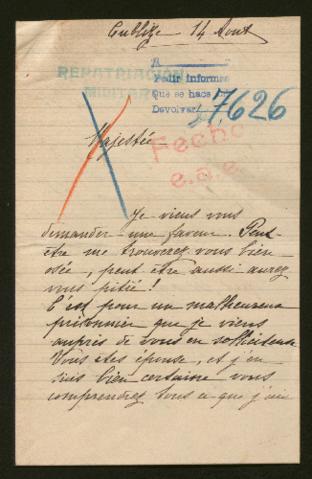 Cublize 14 Aout
REPATRIACION
MILITAR
Pedir informes
Que se haca
Devolver
57626
Fecho
e.a.e.
Majestée
Je viens vous
demander une faveur. Peut-
être me trouverez-vous bien
osée, peut être aussi aurez
vous pitié!
C'est pour un malheureux
prisonnier que je viens
auprès de vous en solliciteuse
Vous êtes épouse, et j'en
suis bien certaine vous
comprendrez tous ce que j'ai